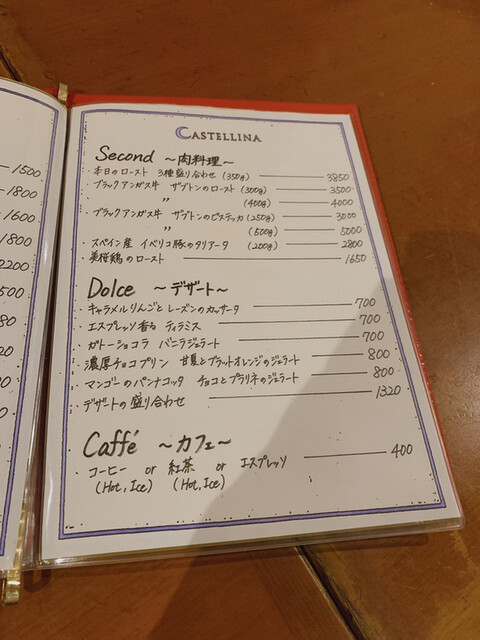 CASTELLINA
Second 〜肉料理〜
・本日のロースト 3種盛り合わせ (350g) 3850
・ブラックアンガス牛 ザブトンのロースト (300g) 3500
・ 〃 (400g) 4000
・ブラックアンガス牛 ザブトンのビステッカ (250g) 3000
〃 (500g) 5000
・スペイン産 イベリコ豚のタリアータ (200g) 2800
・美桜鶏のロースト 1650
Dolce 〜デザート〜
・キャラメルりんごとレーズンのカッサータ 700
・エスプレッソ香る ティラミス 700
・ガトーショコラ バニラジェラート 700
・濃厚チョコプリン 甘夏とブラッドオレンジのジェラート 800
・マンゴーのパンナコッタ チョコとプラリネのジェラート 800
・デザートの盛り合わせ 1320
Caffé 〜カフェ〜
・コーヒー or 紅茶 or エスプレッソ 400
(Hot, Ice) (Hot, Ice)
1500
1800
1600
1800
2200